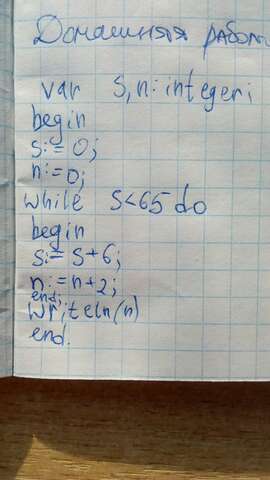 Домашняя работ
var s,n:integer;
begin
s:=0;
n:=0;
while s<65 do
begin
s:=s+6;
n:=n+2;
end;
writeln(n)
end.